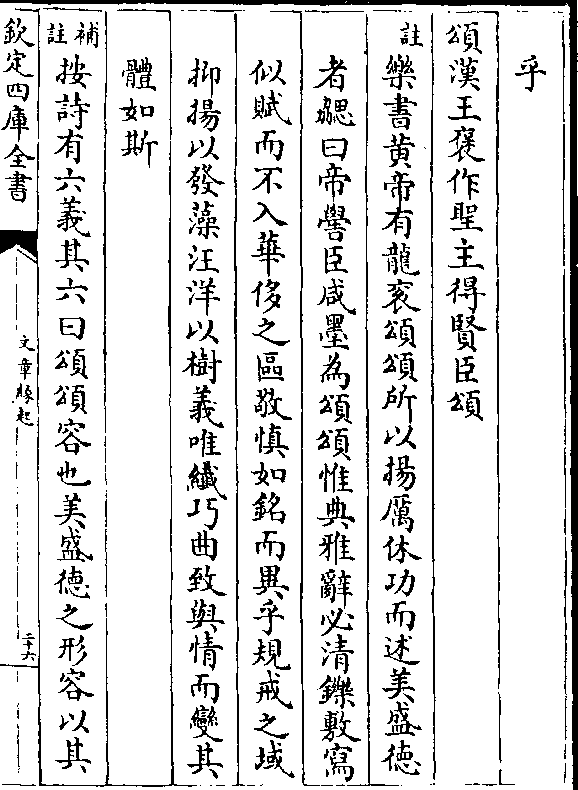 乎
頌漢王褒作聖主得賢臣頌
註樂書黄帝有龍衮頌頌所以揚厲休功而述美盛德
者勰曰帝嚳臣咸墨為頌頌惟典雅辭必清鑠敷寫
似賦而不入華侈之區敬慎如銘而異乎規戒之域
抑揚以發藻汪洋以樹義唯纎巧曲致與情而變其
體如斯
補註按詩有六義其六曰頌頌容也美盛德之形容以其
欽定四庫全書
文章緣起
二十六